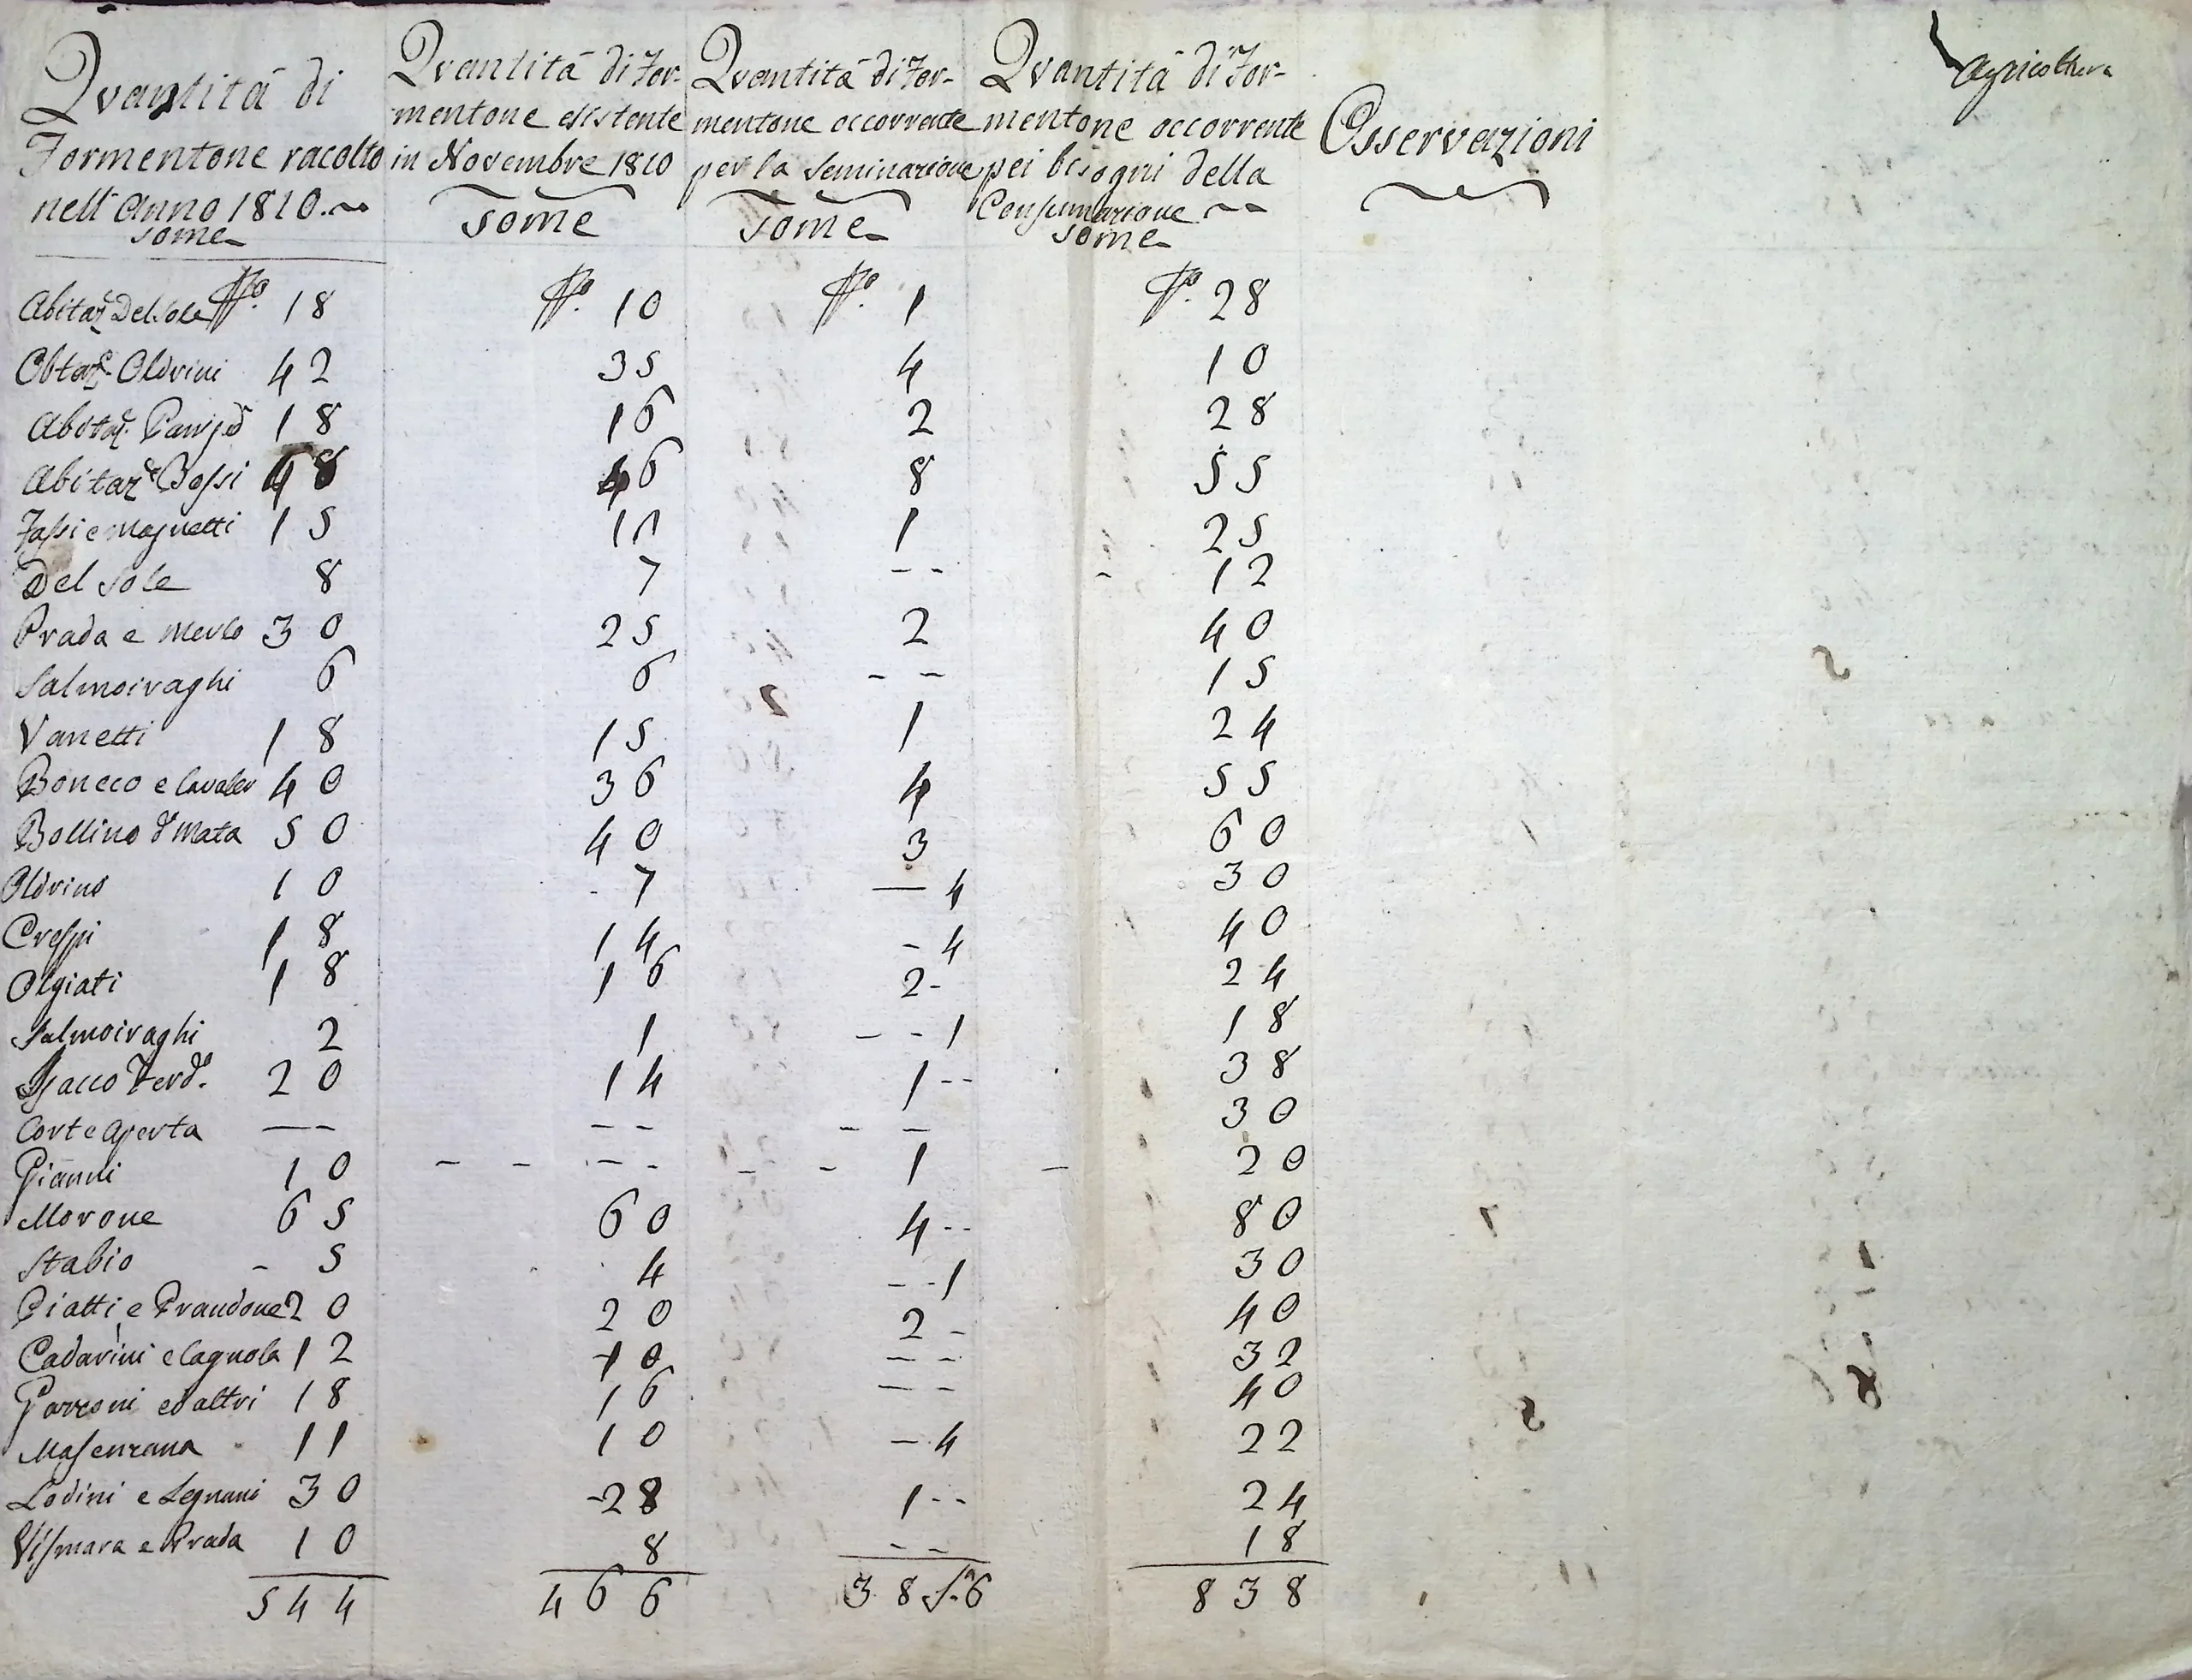 Agricoltura
Quantità di Formentone racolto nell'Anno 1810. some
Quantità di Formentone esistente in Novembre 1810 some
Quantità di Formentone occorrente per la seminazione some
Quantità di Formentone occorrente pei bisogni della Consumazione some
Osservazioni
Abitaz. Del Sole N.o 18 N.o 10 N.o 1 N.o 28
Abitaz. Oldrini 42 35 4 10
Abitaz. 18 16 2 28
Abitaz.e Bossi 48 46 8 55
Fassi e Magnetti 15 11 1 25
Del Sole 8 7 - - - 12
Prada e Merlo 30 25 2 40
Salmoiraghi 6 6 - - 15
Vanetti 18 15 1 24
Boneco e Cavaler 40 36 4 55
Bollino d Mata 50 40 3 60
Oldrino 10 7 — 4 30
Crespi 18 14 - 4 40
Olgiati 18 16 2 - 24
Salmoiraghi 2 1 - - 1 18
Sacco Ferd.o 20 14 1 - - 38
Corte aperta — - - - - - 30
Gianni 10 - - - - - - - 1 - 20
Morone 65 60 4 - - 80
Stabio - 5 4 - - 1 30
Piatti e Prandone 20 20 2 - 40
Cadarini e Cagnola 12 10 - - 32
Parroni ed altri 18 16 - - 40
Masenzana 11 10 - 4 22
Lodini e Legnani 30 -28 1 - - 24
Vismara e Prada 10 8 - - 18
544 466 38 S.a 6 838